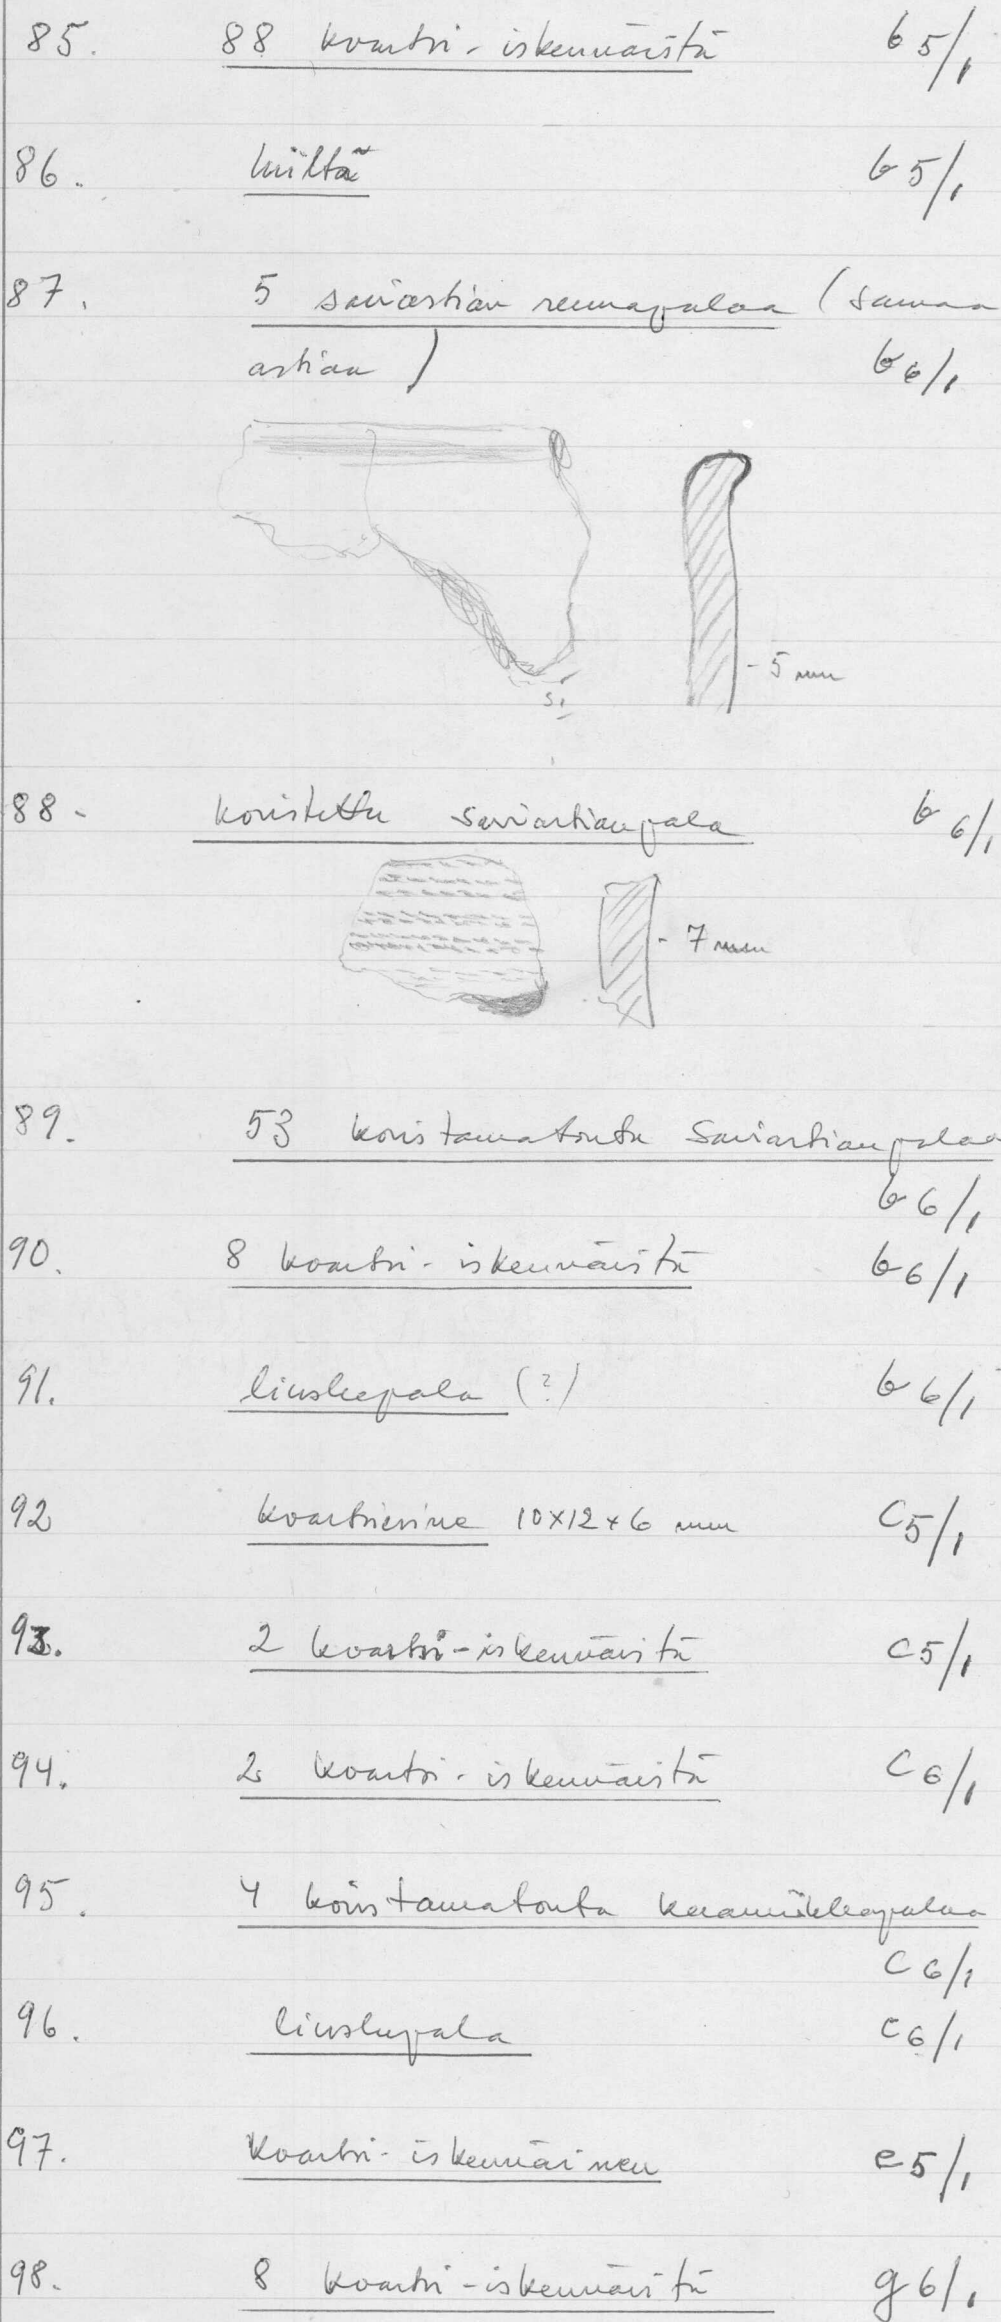 85. 88 kvartsi-iskennäistä b5/1
86. kiiltä b5/1
87. 5 saviastian reunapalaa (samaa
astiaa) b6/1
- 5 mm
88. koristettu saviastianpala b6/1
- 7 mm
89. 53 koristamatonta saviastianpalaa
b6/1
90. 8 kvartsi-iskennäistä b6/1
91. liuskepala (?) b6/1
92 kvartsiesine 10x12x6 mm C5/1
93. 2 kvartsi-iskennäistä C5/1
94. 2 kvartsi-iskennäistä C6/1
95. 4 koristamatonta keramiikkapalaa
C6/1
96. liuskepala C6/1
97. Kvartsi-iskennäinen e5/1
98. 8 kvartsi-iskennäistä g6/1